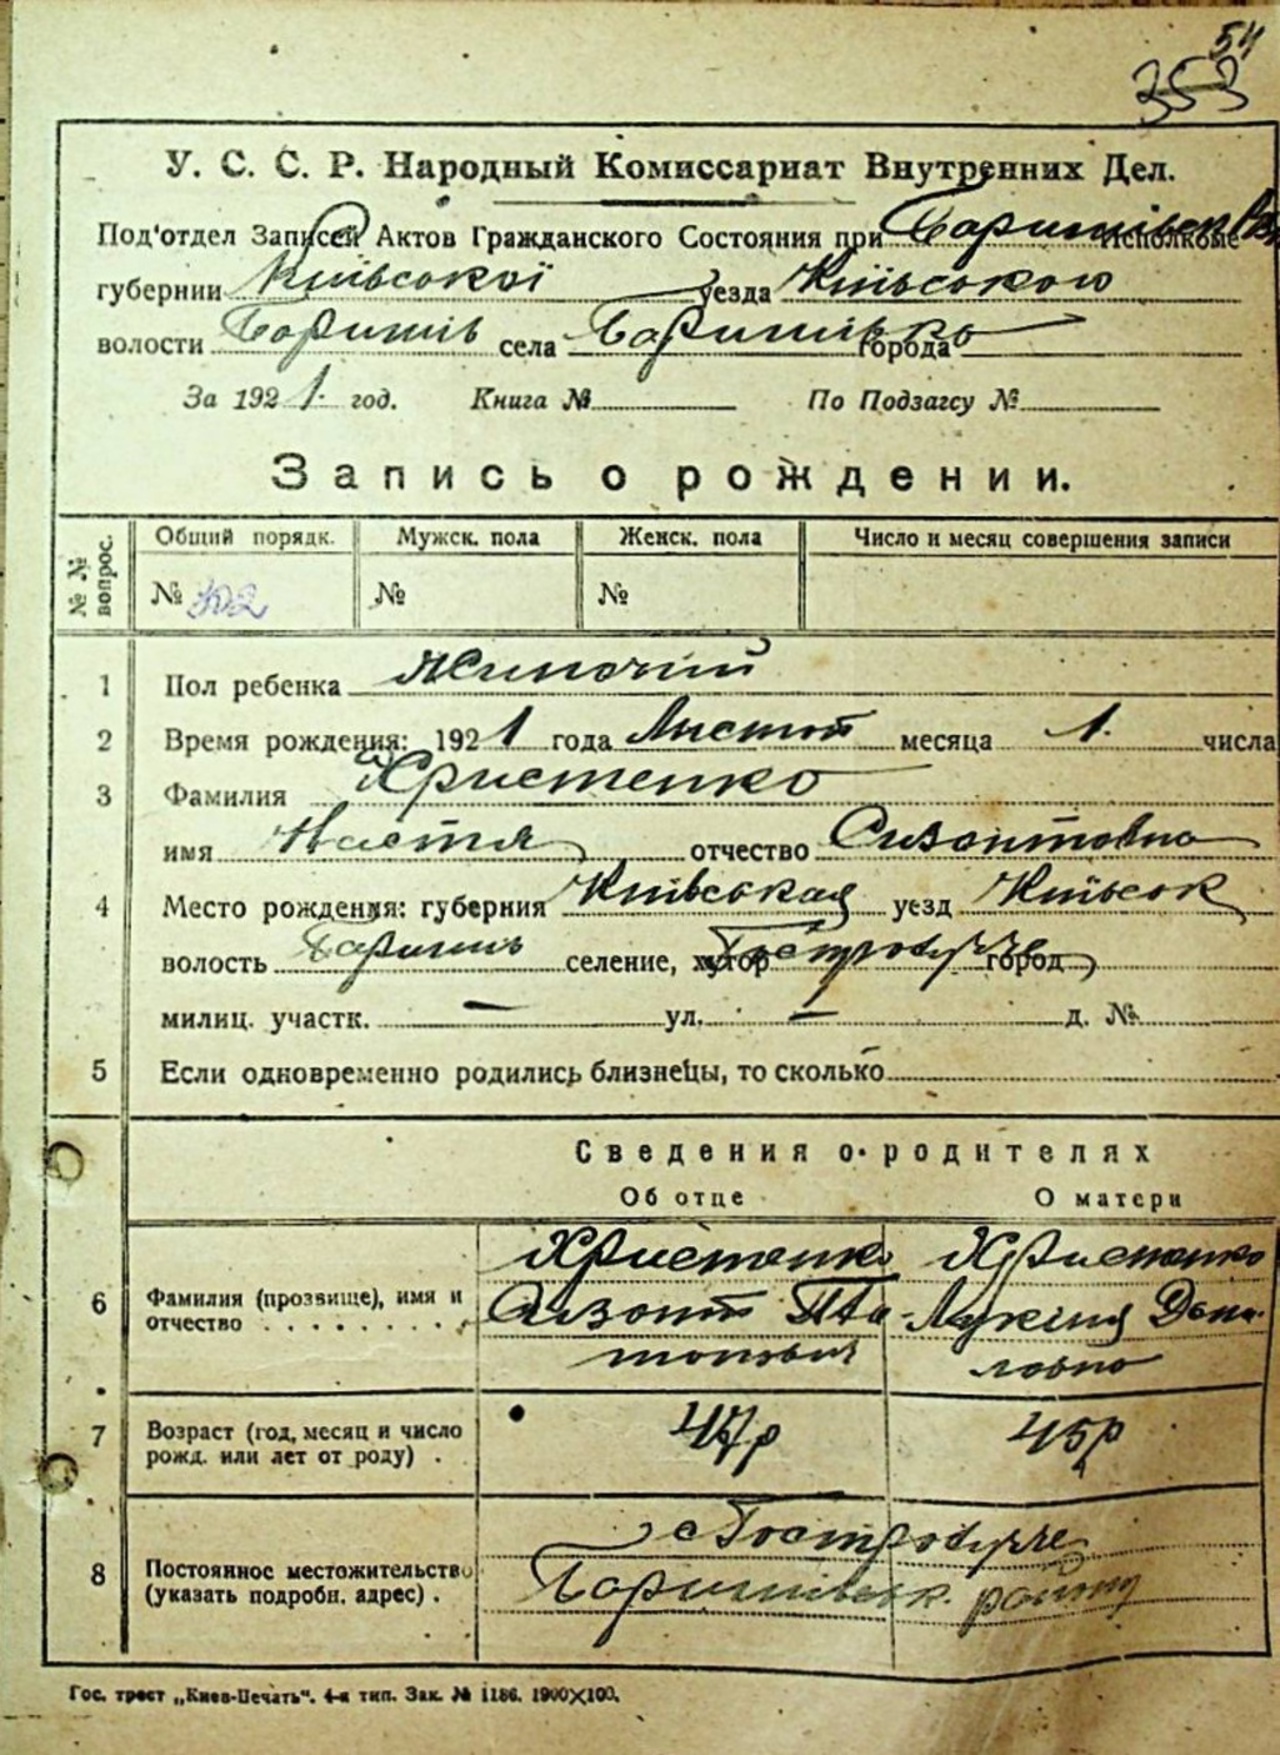 54
353
У. С. С. Р. Народный Комиссариат Внутренних Дел.
Под'отдел Записей Актов Гражданского Состояния при Баришівськ Исполкоме
губернии Київської уезда Київського
волости Баришів села Баришівка города
За 1921. год. Книга № По Подзагсу №
Запись о рождении.
№№ вопрос. Общий порядк. Мужск. пола Женск. пола Число и месяц совершения записи
№ 302 № №
1 Пол ребенка Жиночий
2 Время рождения: 1921 года Листоп месяца 1. числа
3 Фамилия Христенко
имя Настя отчество Сизонтовна
4 Место рождения: губерния Київськая уезд Київськ
волость Баришів селение, хутор Гостролуччє город
милиц. участк. — ул. — д. №
5 Если одновременно родились близнецы, то сколько
Сведения о родителях
Об отце О матери
6 Фамилия (прозвище), имя и отчество Христенко Христенко
Сизонт Пла- Лукия
тонович
7 Возраст (год, месяц и число рожд. или лет от роду) 47р 45р
8 Постоянное местожительство (указать подробн. адрес) с Гостролуччє
Баришівськ. району
Гос. трест „Киев-Печать“. 4-я тип. Зак. № 1186. 1900×100.